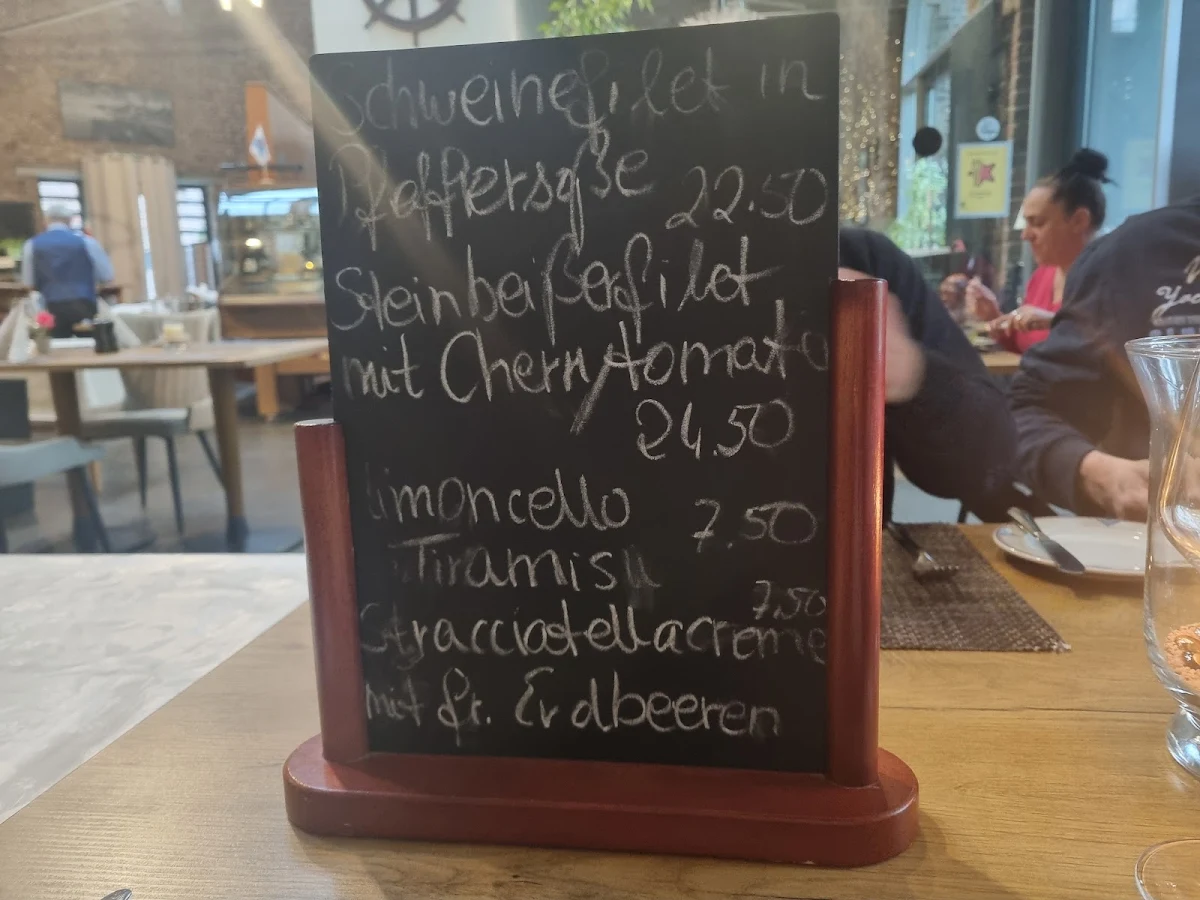 Schweinefilet in
Pfeffersoße 22.50
Steinbeißerfilet
mit Cherrytomate
24.50
limoncello 7.50
Tiramisu
7,50
Stracciatellacreme
mit fr. Erdbeeren